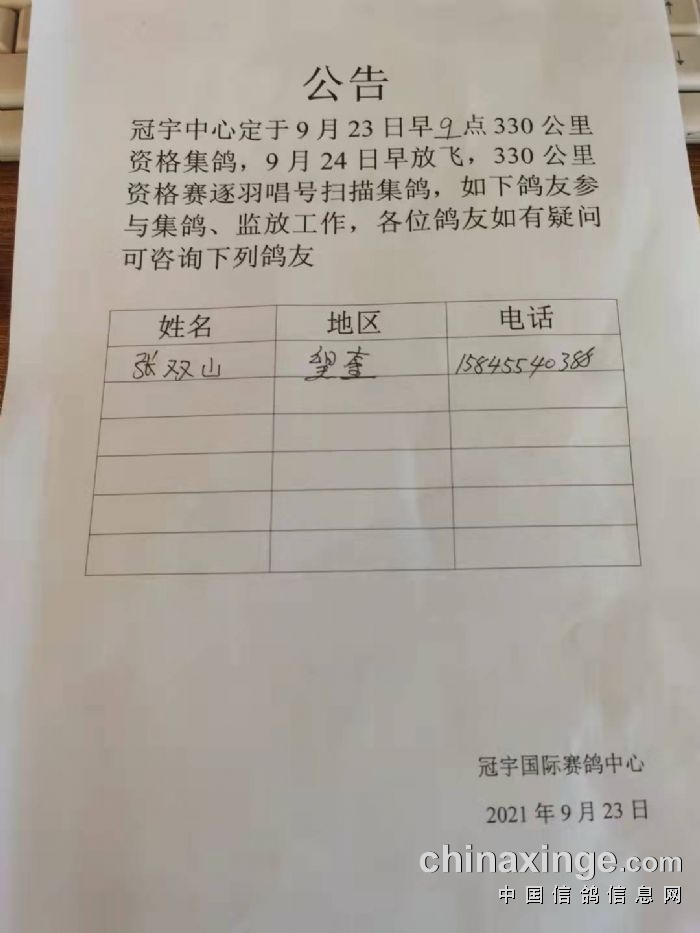 公告
冠宇中心定于9月23日早9点330公里
资格集鸽，9月24日早放飞，330公里
资格赛逐羽唱号扫描集鸽，如下鸽友参
与集鸽、监放工作，各位鸽友如有疑问
可咨询下列鸽友
姓名 地区 电话
张双山 望奎
冠宇国际赛鸽中心
2021年9月23日
chinaxinge.com
中国信鸽信息网